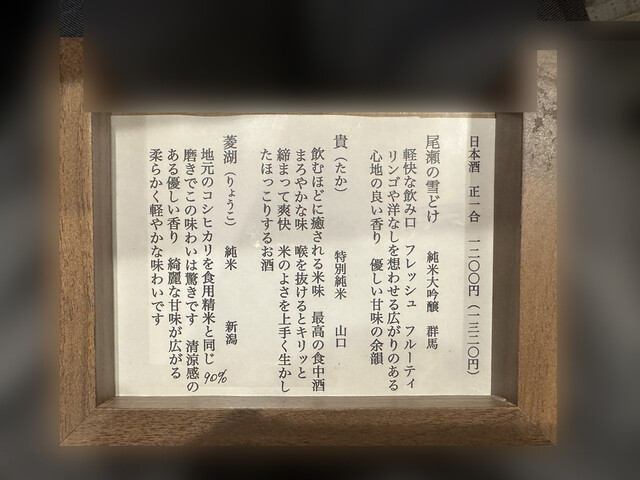 日本酒　正一合　一二〇〇円（一三二〇円）
尾瀬の雪どけ　純米大吟醸　群馬
軽快な飲み口　フレッシュ　フルーティ
リンゴや洋なしを想わせる広がりのある
心地の良い香り　優しい甘味の余韻
貴（たか）　特別純米　山口
飲むほどに癒される米味　最高の食中酒
まろやかな味　喉を抜けるとキリッと
締まって爽快　米のよさを上手く生かし
たほっこりするお酒
菱湖（りょうこ）　純米　新潟
地元のコシヒカリを食用精米と同じ90%
磨きでこの味わいは驚きです　清涼感の
ある優しい香り　綺麗な甘味が広がる
柔らかく軽やかな味わいです